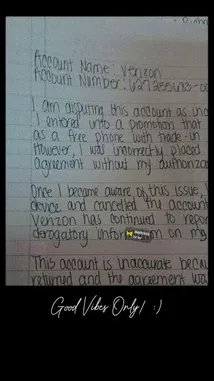 Account Name: Verizon
Account Number:
I am disputing this account as
I entered into a promotion that
as a free phone with trade-in
However, I was incorrectly placed
agreement without my
Once I became aware of this issue,
device and cancelled the account
Verizon has continued to
derogatory information on my
This account is inaccurate
returned and the agreement
Good Vibes Only! :)